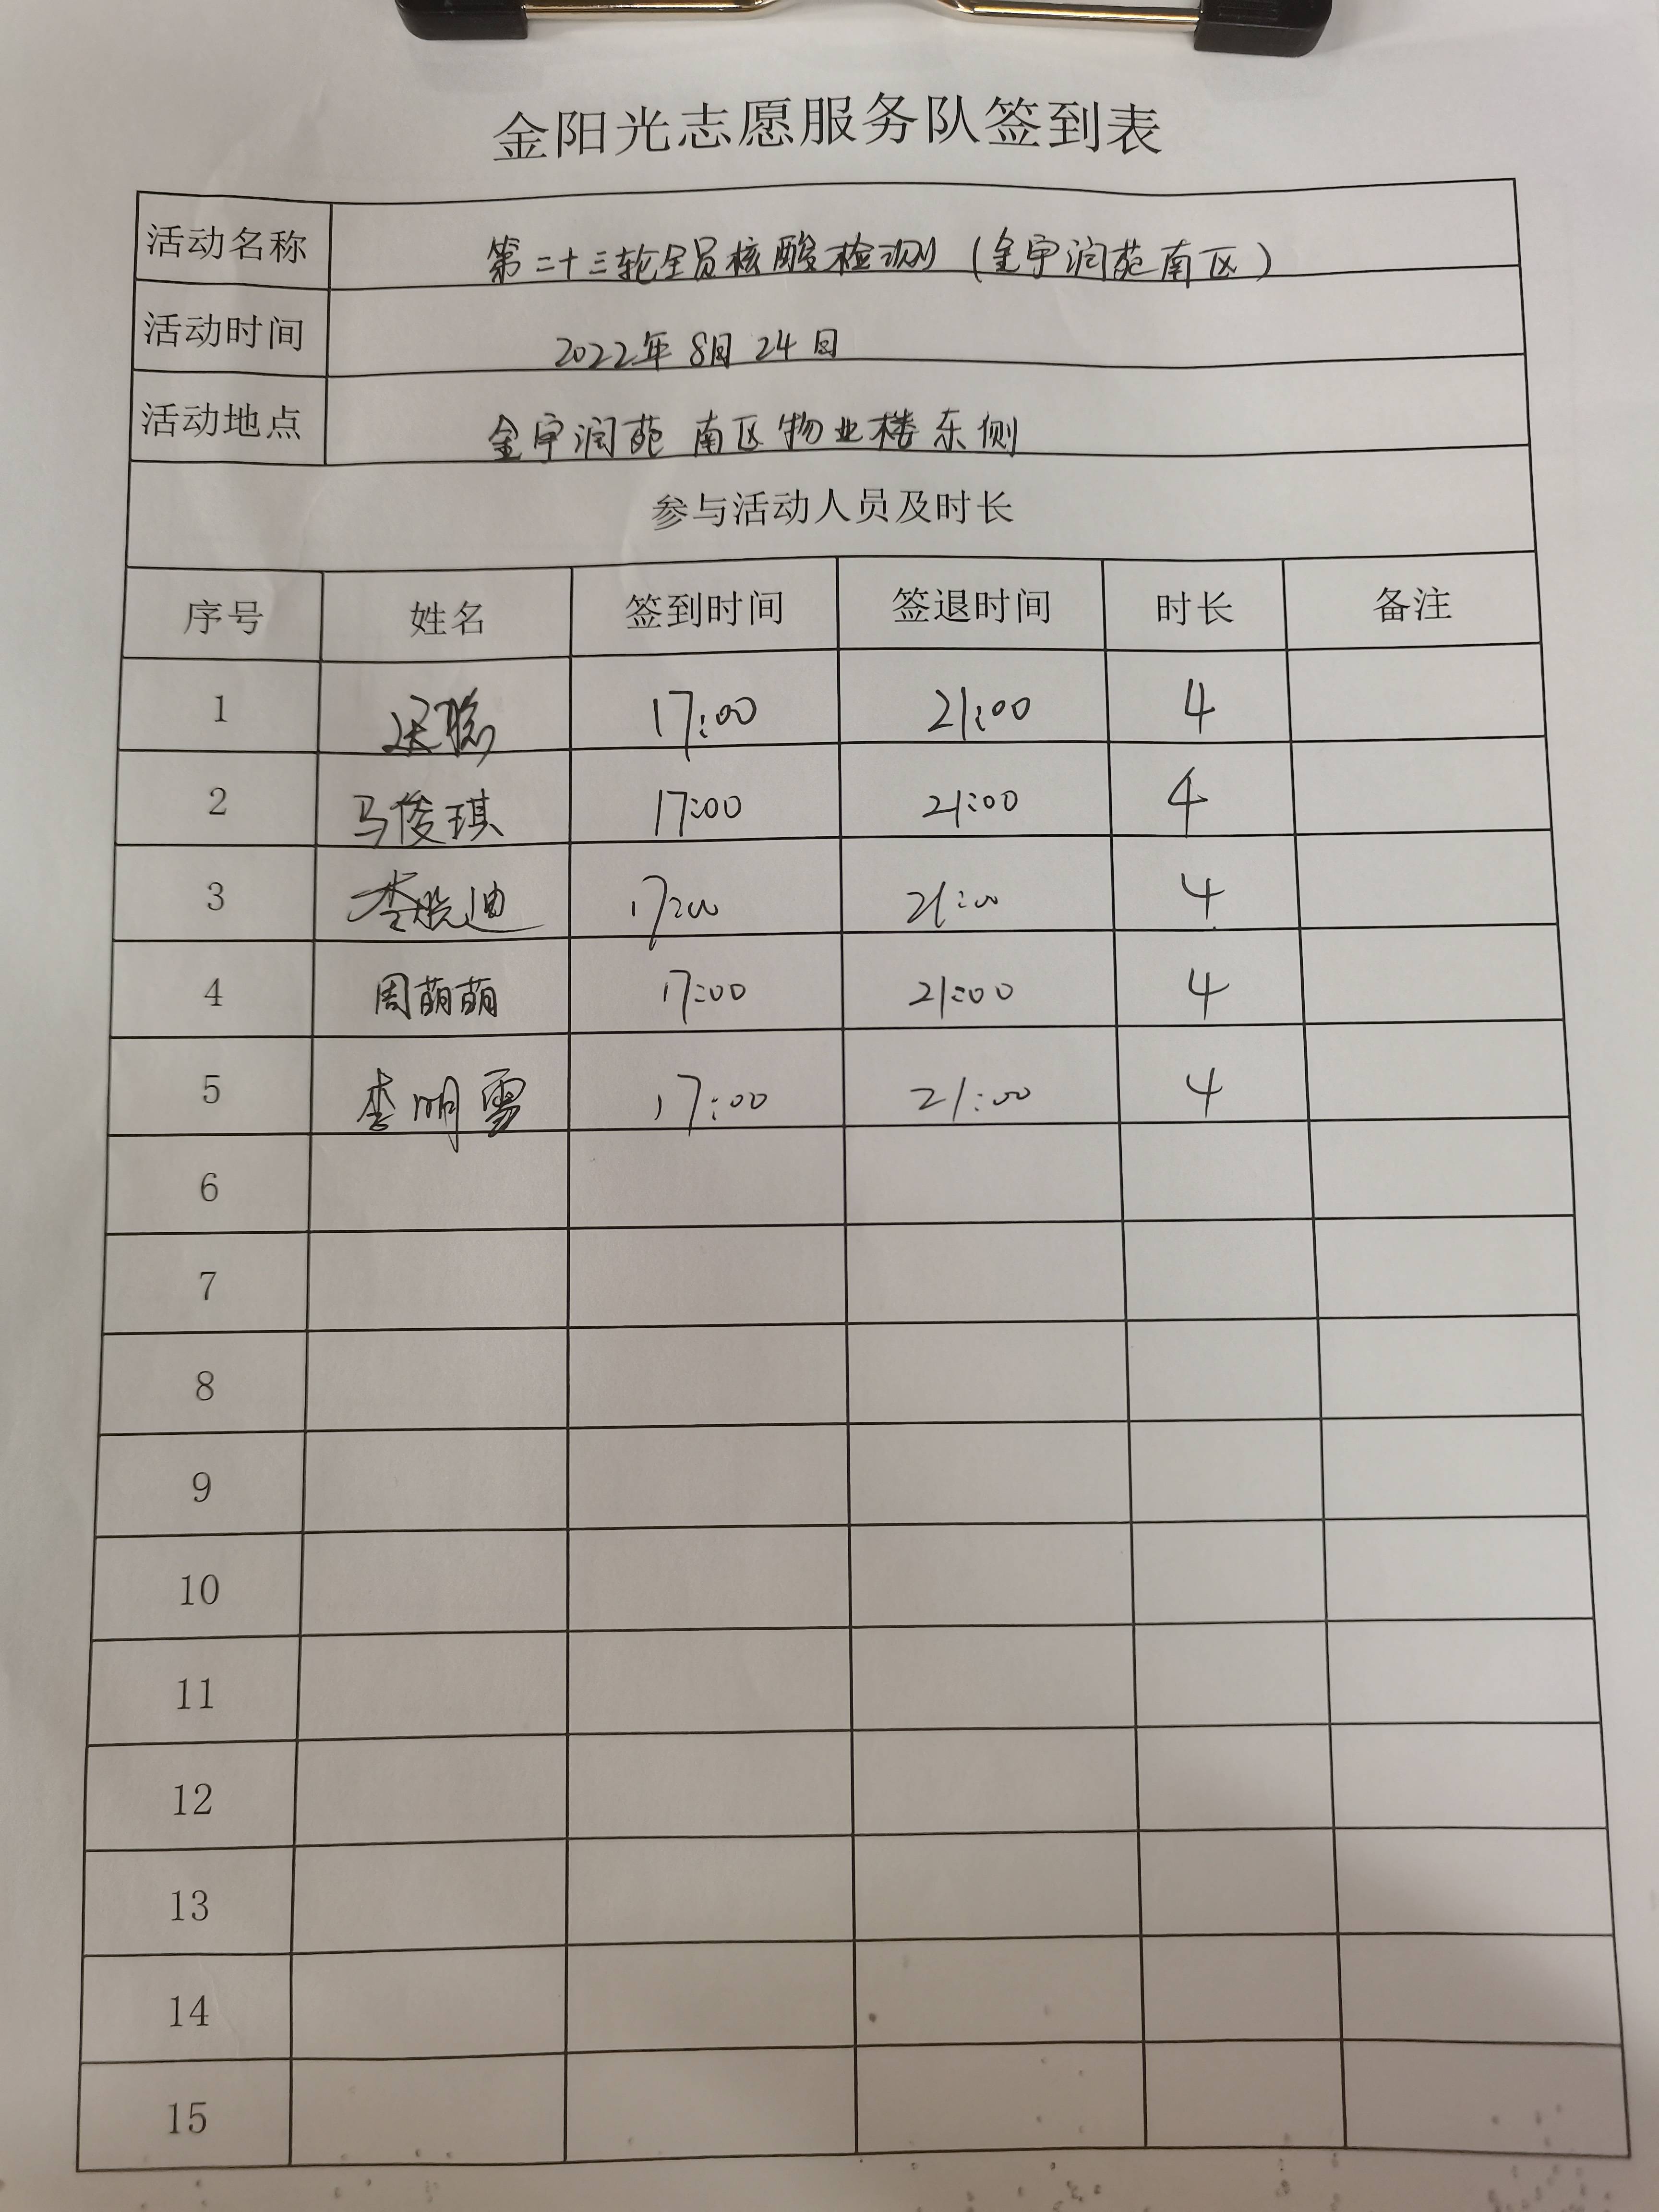 金阳光志愿服务队签到表
活动名称 第二十三轮全员核酸检测(金宇润苑南区)
活动时间 2022年8月24日
活动地点 金宇润苑南区物业楼东侧
参与活动人员及时长
序号 姓名 签到时间 签退时间 时长 备注
1 聪 17:00 21:00 4
2 马俊琪 17:00 21:00 4
3 李 迪 17:00 21:00 4
4 周萌萌 17:00 21:00 4
5 李明雪 17:00 21:00 4
6
7
8
9
10
11
12
13
14
15